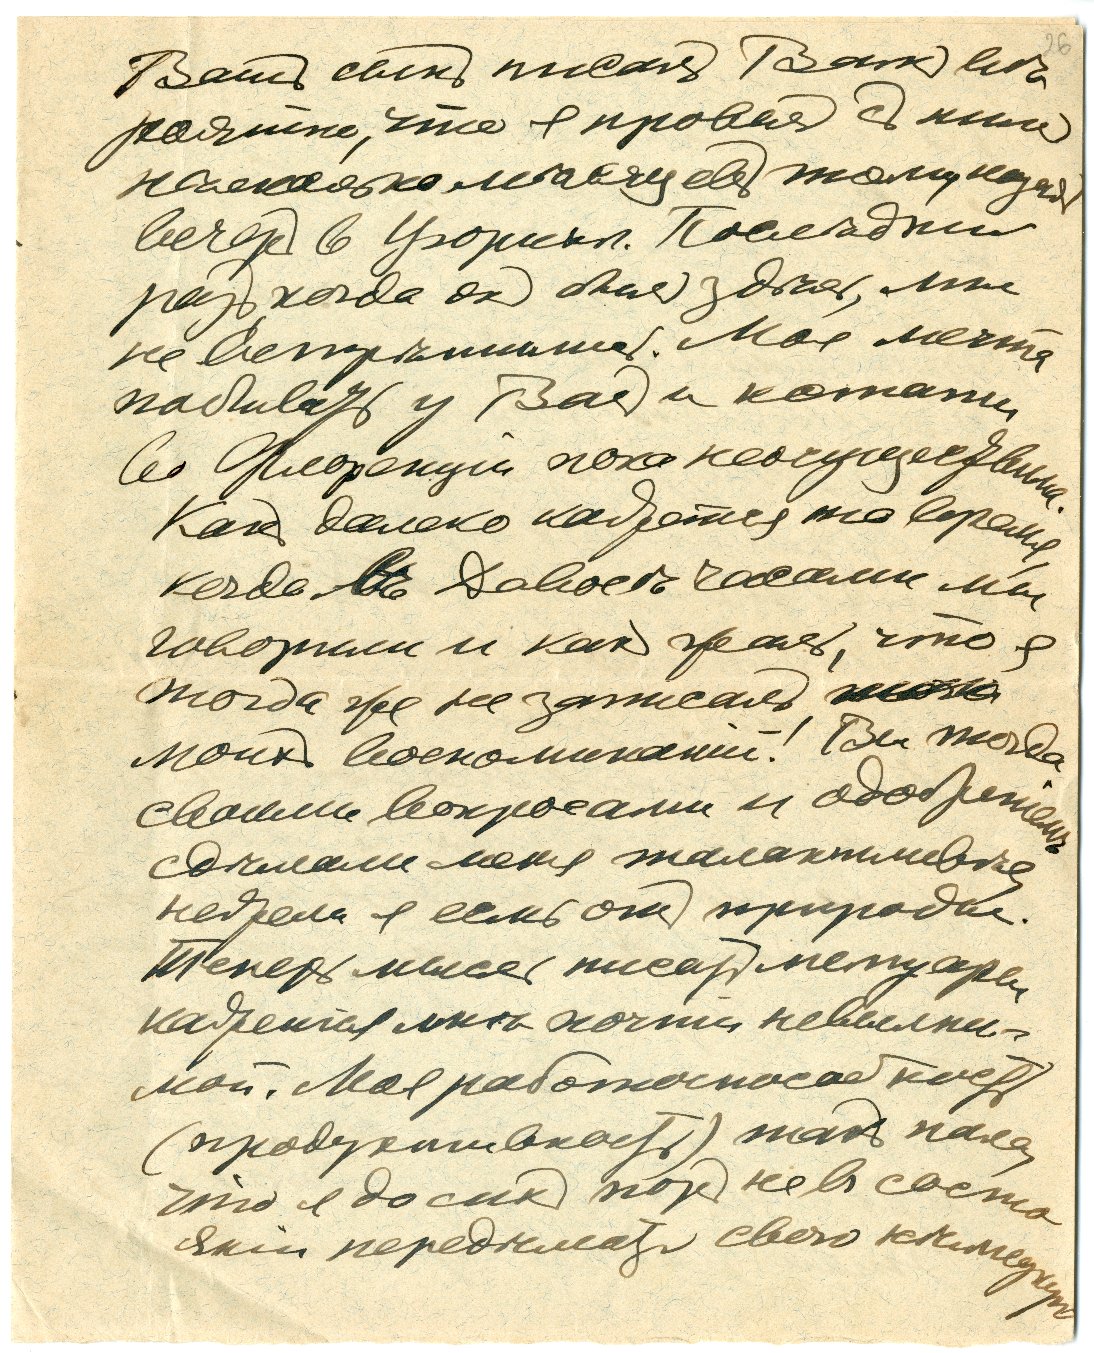 26
Вашъ сынъ писалъ Вамъ вѣ
роятно, что я провелъ съ нимъ
нѣсколько мѣсяцевъ тому назадъ
вечеръ въ Цюрихѣ. Послѣдній
разъ когда онъ былъ здѣсь, мы
не встрѣтились. Моя мечта
побывать у Васъ и кстати
во Флоренціи пока неосуществима.
Какъ далеко кажется то время,
когда въ Давосѣ часами мы
говорили и какъ жаль, что я
тогда же не записалъ
моихъ воспоминаній! Вы тогда
своими вопросами и одобреніемъ
сдѣлали меня талантливѣе,
нежели я есмь отъ природы.
Теперь мысль писать мемуары
кажется мнѣ почти невыпол-
мой. Моя работоспособность
(продуктивность) такъ пала,
что я до сихъ поръ не въ состо
яніи передѣлать свою